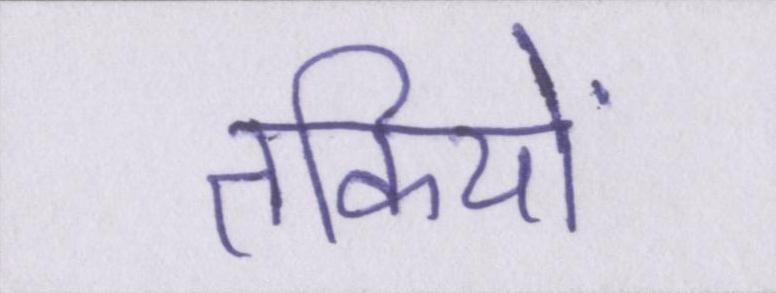 तकियों